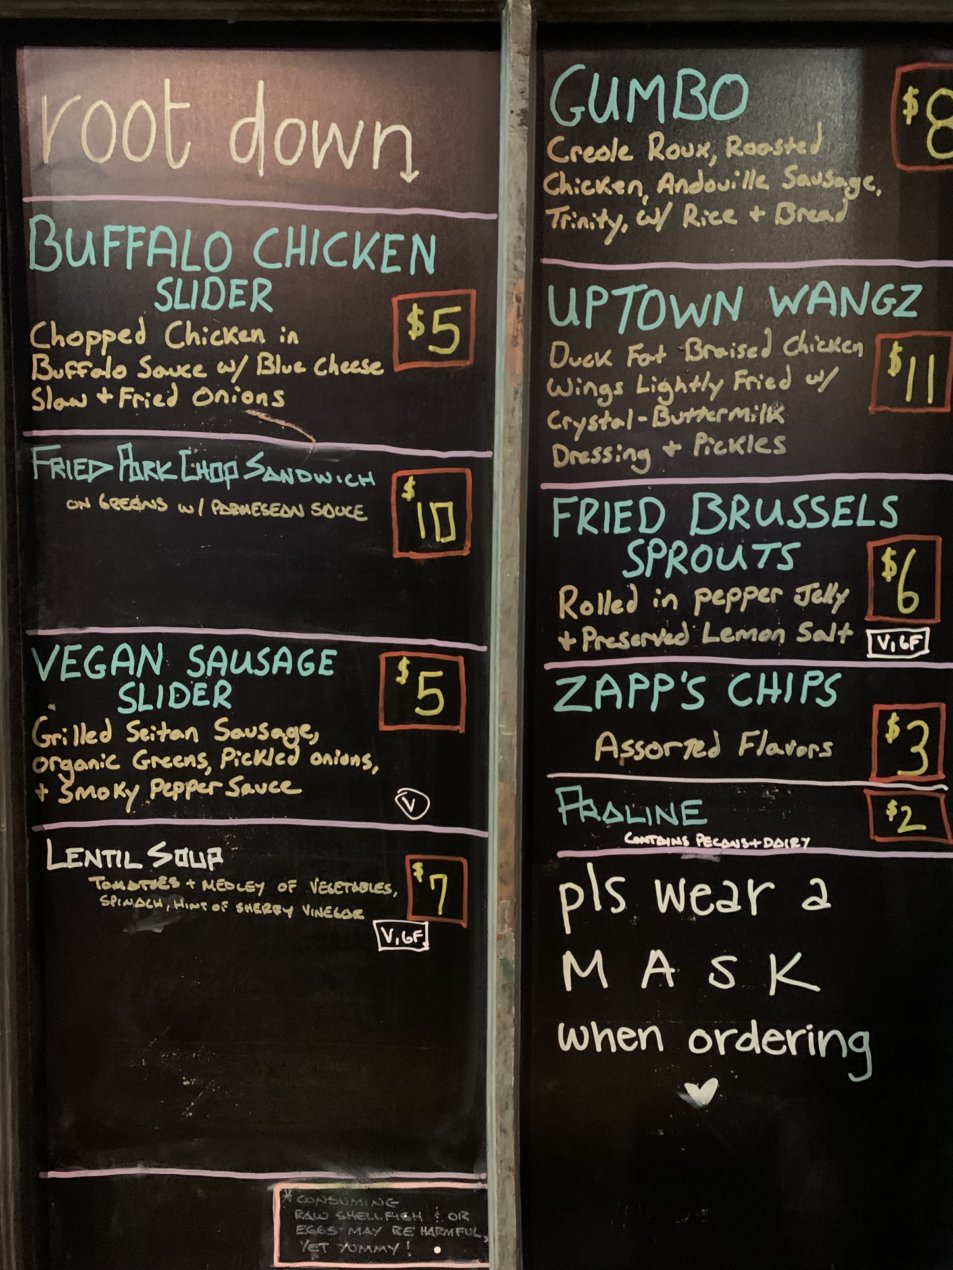 root down
BUFFALO CHICKEN
SLIDER
$5
Chopped Chicken in
Buffalo Sauce w/ Blue Cheese
Slaw + Fried Onions
FRIED PORK CHOP SANDWICH
ON GREENS W/ PARMESEAN SAUCE
$10
VEGAN SAUSAGE
SLIDER
$5
Grilled Seitan Sausage,
organic Greens, Pickled onions,
+ Smoky Pepper Sauce
V
LENTIL SOUP
TOMATOES + MEDLEY OF VEGETABLES,
SPINACH, HINT OF SHERRY VINEGAR
$7
V, GF
*CONSUMING
RAW SHELLFISH & OR
EGGS MAY BE HARMFUL,
YET YUMMY!
GUMBO
$8
Creole Roux, Roasted
Chicken, Andouille Sausage,
Trinity, w/ Rice + Bread
UPTOWN WANGZ
Duck Fat Braised Chicken
$11
Wings Lightly Fried w/
Crystal-Buttermilk
Dressing + Pickles
FRIED BRUSSELS
SPROUTS
$6
Rolled in pepper Jelly
+ Preserved Lemon Salt
V, GF
ZAPP'S CHIPS
Assorted Flavors
$3
PRALINE
CONTAINS PECANS + DAIRY
$2
pls wear a
MASK
when ordering